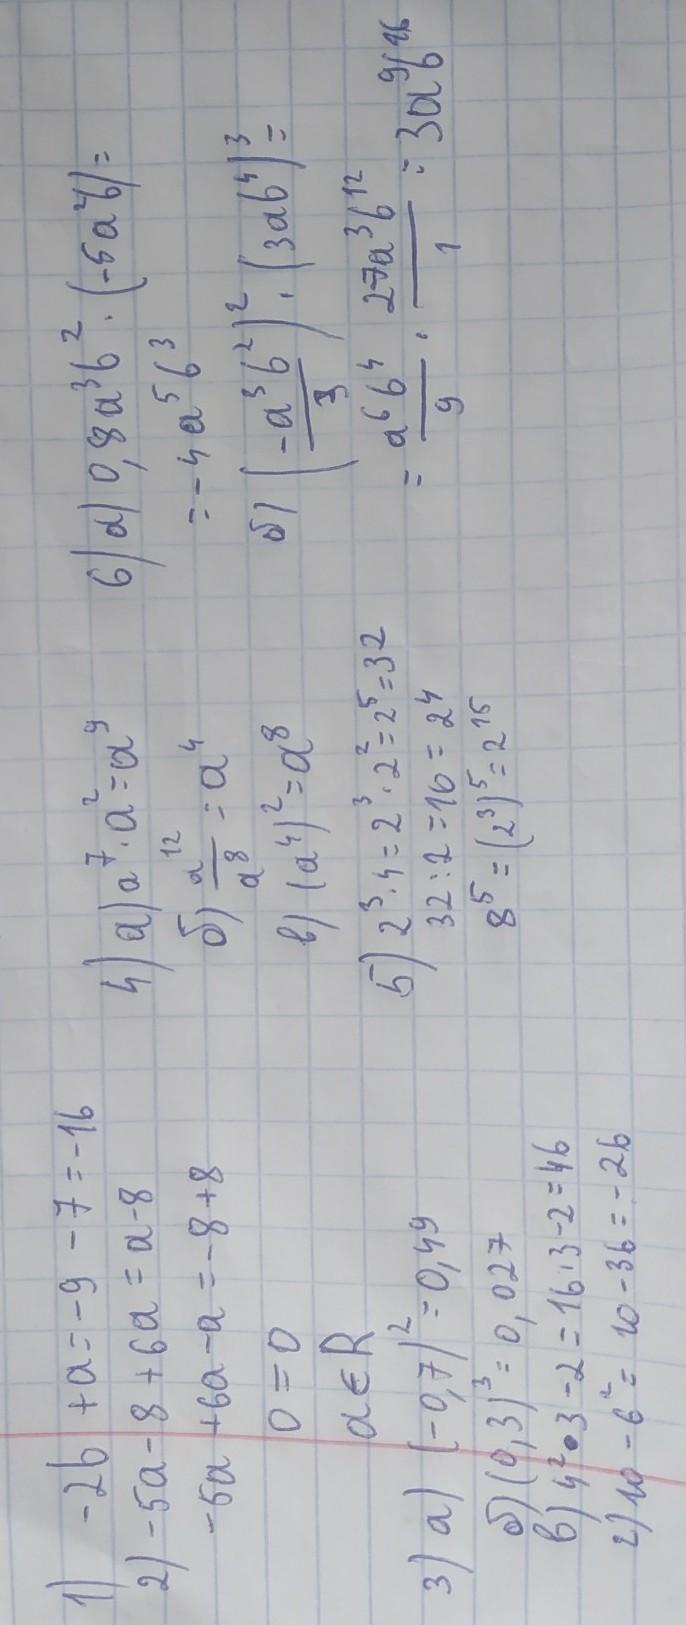 1) -2b + a = -9 - 7 = -16
2) -5a - 8 + 6a = a - 8
-5a + 6a - a = -8 + 8
0 = 0
a ∈ R
3) a) (-0,7)² = 0,49
б) (0,3)³ = 0,027
в) 4² • 3 - 2 = 16 · 3 - 2 = 46
г) 10 - 6² = 10 - 36 = -26
4) a) a⁷ · a² = a⁹
б) a¹²/a⁸ = a⁴
в) (a⁴)² = a⁸
5) 2³ · 4 = 2³ · 2² = 2⁵ = 32
32 : 2 = 16 = 2⁴
8⁵ = (2³)⁵ = 2¹⁵
6) a) 0,8a³b² · (-5a²b) =
= -4a⁵b³
б) (-a³b²/3)² · (3ab⁴)³ =
= a⁶b⁴/9 · 27a³b¹²/1 = 3a⁹b¹⁶